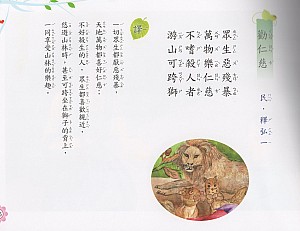 勸仁慈
民．釋弘一
眾生惡殘暴
萬物樂仁慈
不嗜殺人者
游山可跨獅
譯
一切眾生都厭惡殘暴，
天地萬物都喜好仁慈。
不好殺生的人，眾生都喜歡親近，
悠遊山林時，甚至可跨坐在獅子的背上，
一同享受山林的樂趣。